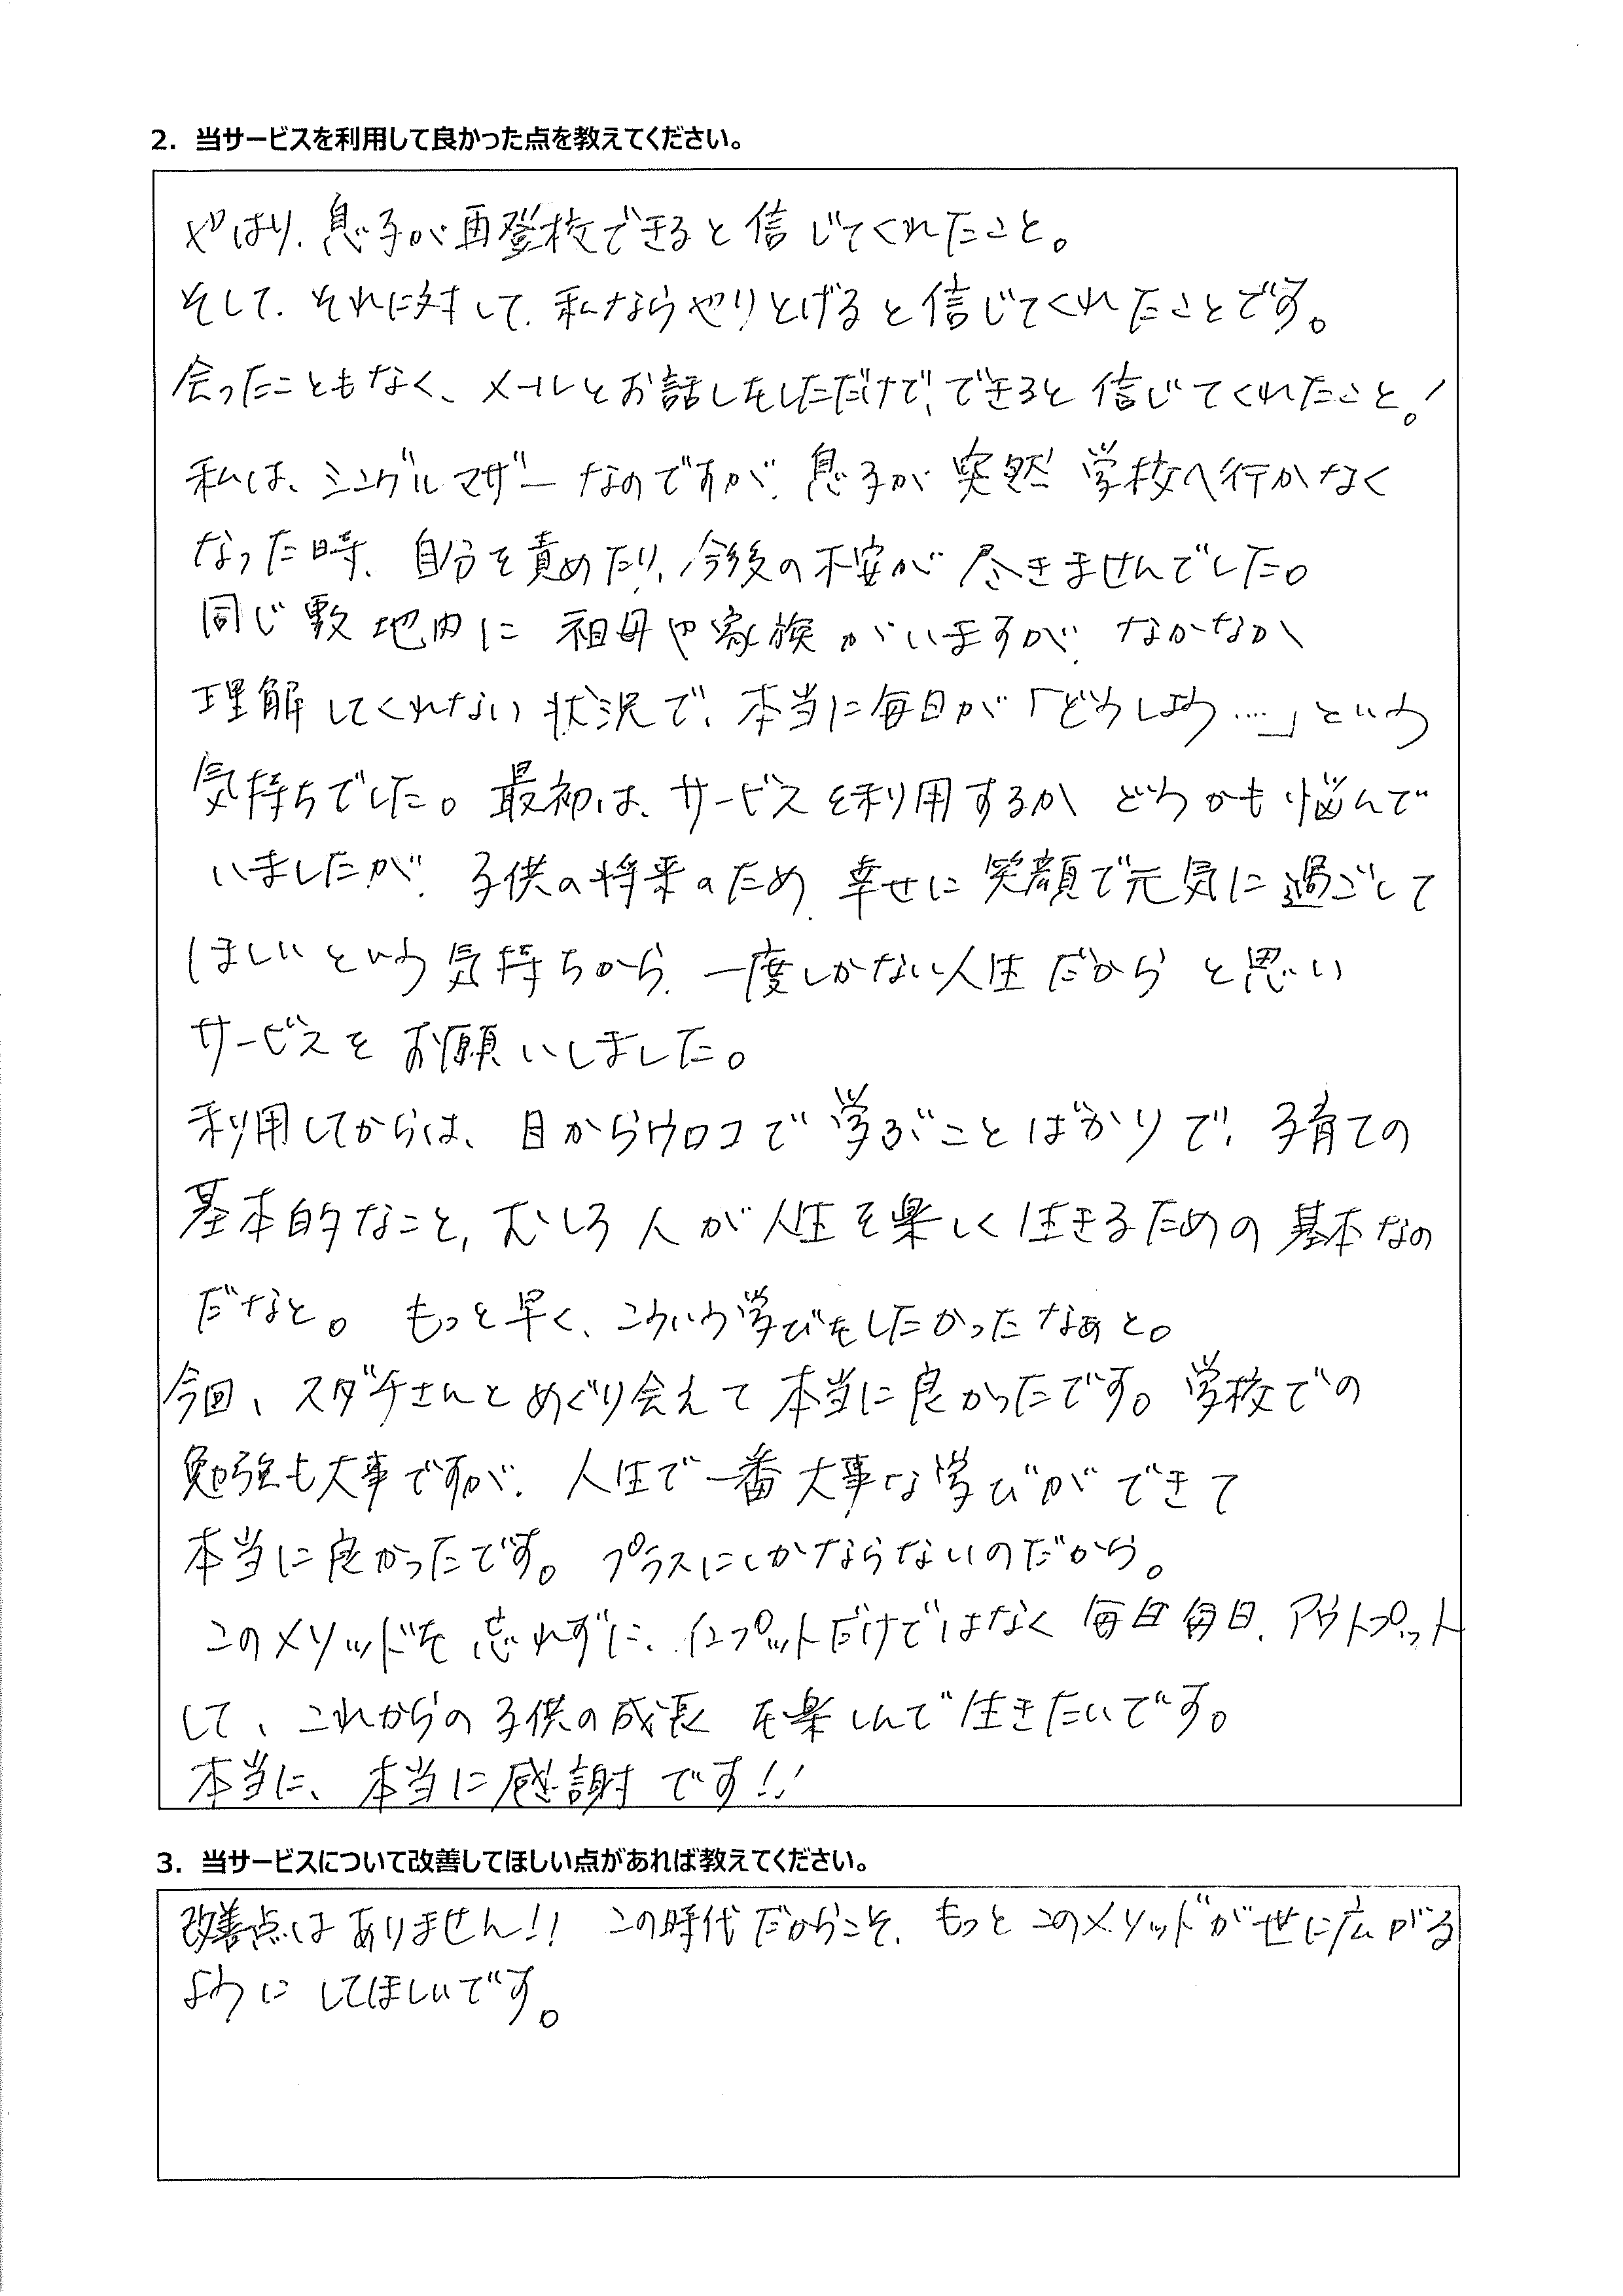 2. 当サービスを利用して良かった点を教えてください。
やはり、息子が再登校できると信じてくれたこと。
そして、それに対して、私ならやりとげると信じてくれたことです。
会ったこともなく、メールとお話しをしただけで、できると信じてくれたこと。!
私は、シングルマザーなのですが、息子が突然学校へ行かなく
なった時、自分を責めたり、今後の不安が尽きませんでした。
同じ敷地内に祖母や家族がいますが、なかなか
理解してくれない状況で、本当に毎日が「どうしよう....」という
気持ちでした。最初は、サービスを利用するかどうかも悩んで
いましたが、子供の将来のため、幸せに笑顔で元気に過ごして
ほしいという気持ちから、一度しかない人生だからと思い
サービスをお願いしました。
利用してからは、目からウロコで学ぶことばかりで、子育ての
基本的なこと、むしろ人が人生を楽しく生きるための基本なの
だなと。もっと早く、こういう学びをしたかったなぁと。
今回、スダチさんとめぐり会えて本当に良かったです。学校での
勉強も大事ですが、人生で一番大事な学びができて
本当に良かったです。プラスにしかならないのだから。
このメソッドを忘れずに、インプットだけではなく毎日毎日、アウトプット
して、これからの子供の成長を楽しんで生きたいです。
本当に、本当に感謝です!!
3. 当サービスについて改善してほしい点があれば教えてください。
改善点はありません!! この時代だからこそ、もっとこのメソッドが世に広がる
ようにしてほしいです。